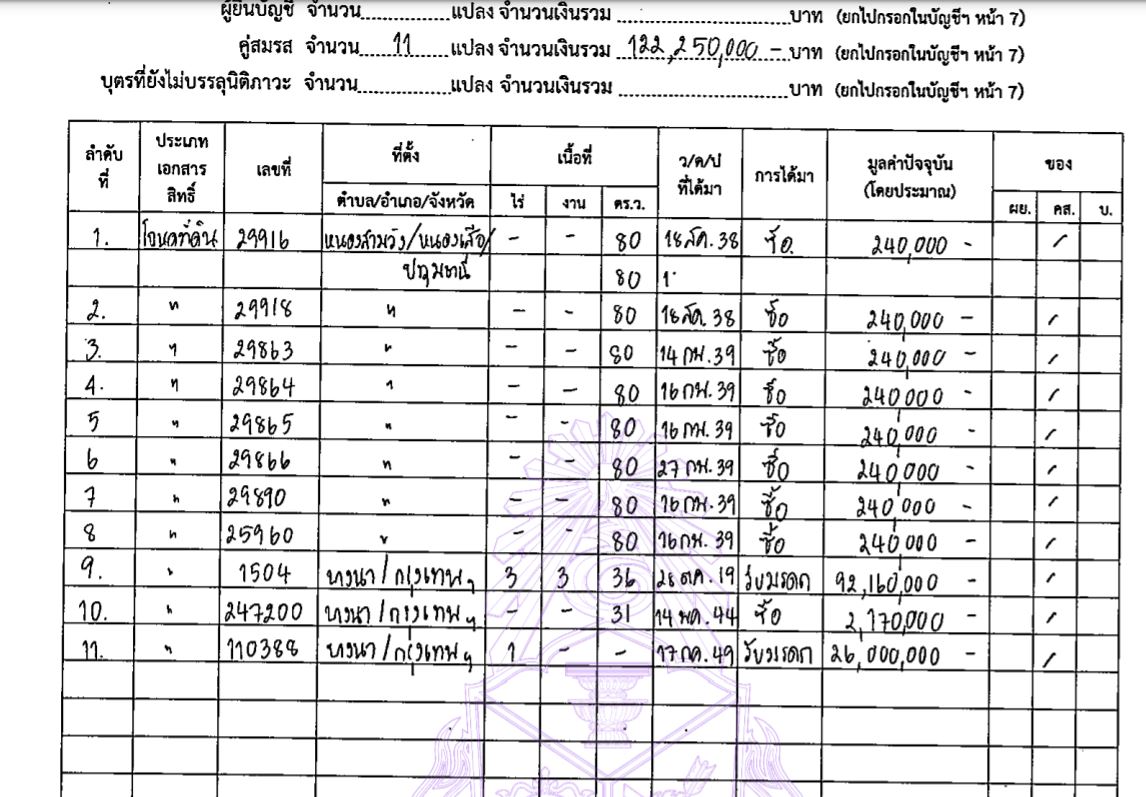 ผู้ยื่นบัญชี จำนวน..............แปลง จำนวนเงินรวม ............................บาท (ยกไปกรอกในบัญชีฯ หน้า 7)
คู่สมรส จำนวน 11 แปลง จำนวนเงินรวม 122,250,000 - บาท (ยกไปกรอกในบัญชีฯ หน้า 7)
บุตรที่ยังไม่บรรลุนิติภาวะ จำนวน..............แปลง จำนวนเงินรวม ............................บาท (ยกไปกรอกในบัญชีฯ หน้า 7)
ลำดับที่ ประเภทเอกสารสิทธิ์ เลขที่ ที่ตั้ง เนื้อที่ ว/ด/ป ที่ได้มา การได้มา มูลค่าปัจจุบัน (โดยประมาณ) ของ
ตำบล/อำเภอ/จังหวัด ไร่ งาน ตร.ว. ผย. คส. บ.
1. โฉนดที่ดิน 29916 หนองสามวัง/หนองเสือ/ - - 80 18 สค. 38 ซื้อ 240,000 - /
ปทุมธานี 80
2. " 29918 " - - 80 18 สค. 38 ซื้อ 240,000 - /
3. " 29863 " - - 80 14 กพ. 39 ซื้อ 240,000 - /
4. " 29864 " - - 80 16 กพ. 39 ซื้อ 240,000 - /
5 " 29865 " - - 80 16 กพ. 39 ซื้อ 240,000 - /
6 " 29866 " - - 80 27 กพ. 39 ซื้อ 240,000 - /
7 " 29890 " - - 80 16 กพ. 39 ซื้อ 240,000 - /
8 " 25960 " - - 80 16 กพ. 39 ซื้อ 240,000 - /
9. " 1504 บางนา/กรุงเทพฯ 3 3 36 28 ตค. 19 รับมรดก 92,160,000 - /
10. " 247200 บางนา/กรุงเทพฯ - - 31 14 พค. 44 ซื้อ 2,170,000 - /
11. " 110388 บางนา/กรุงเทพฯ 1 - - 17 กค. 49 รับมรดก 26,000,000 - /